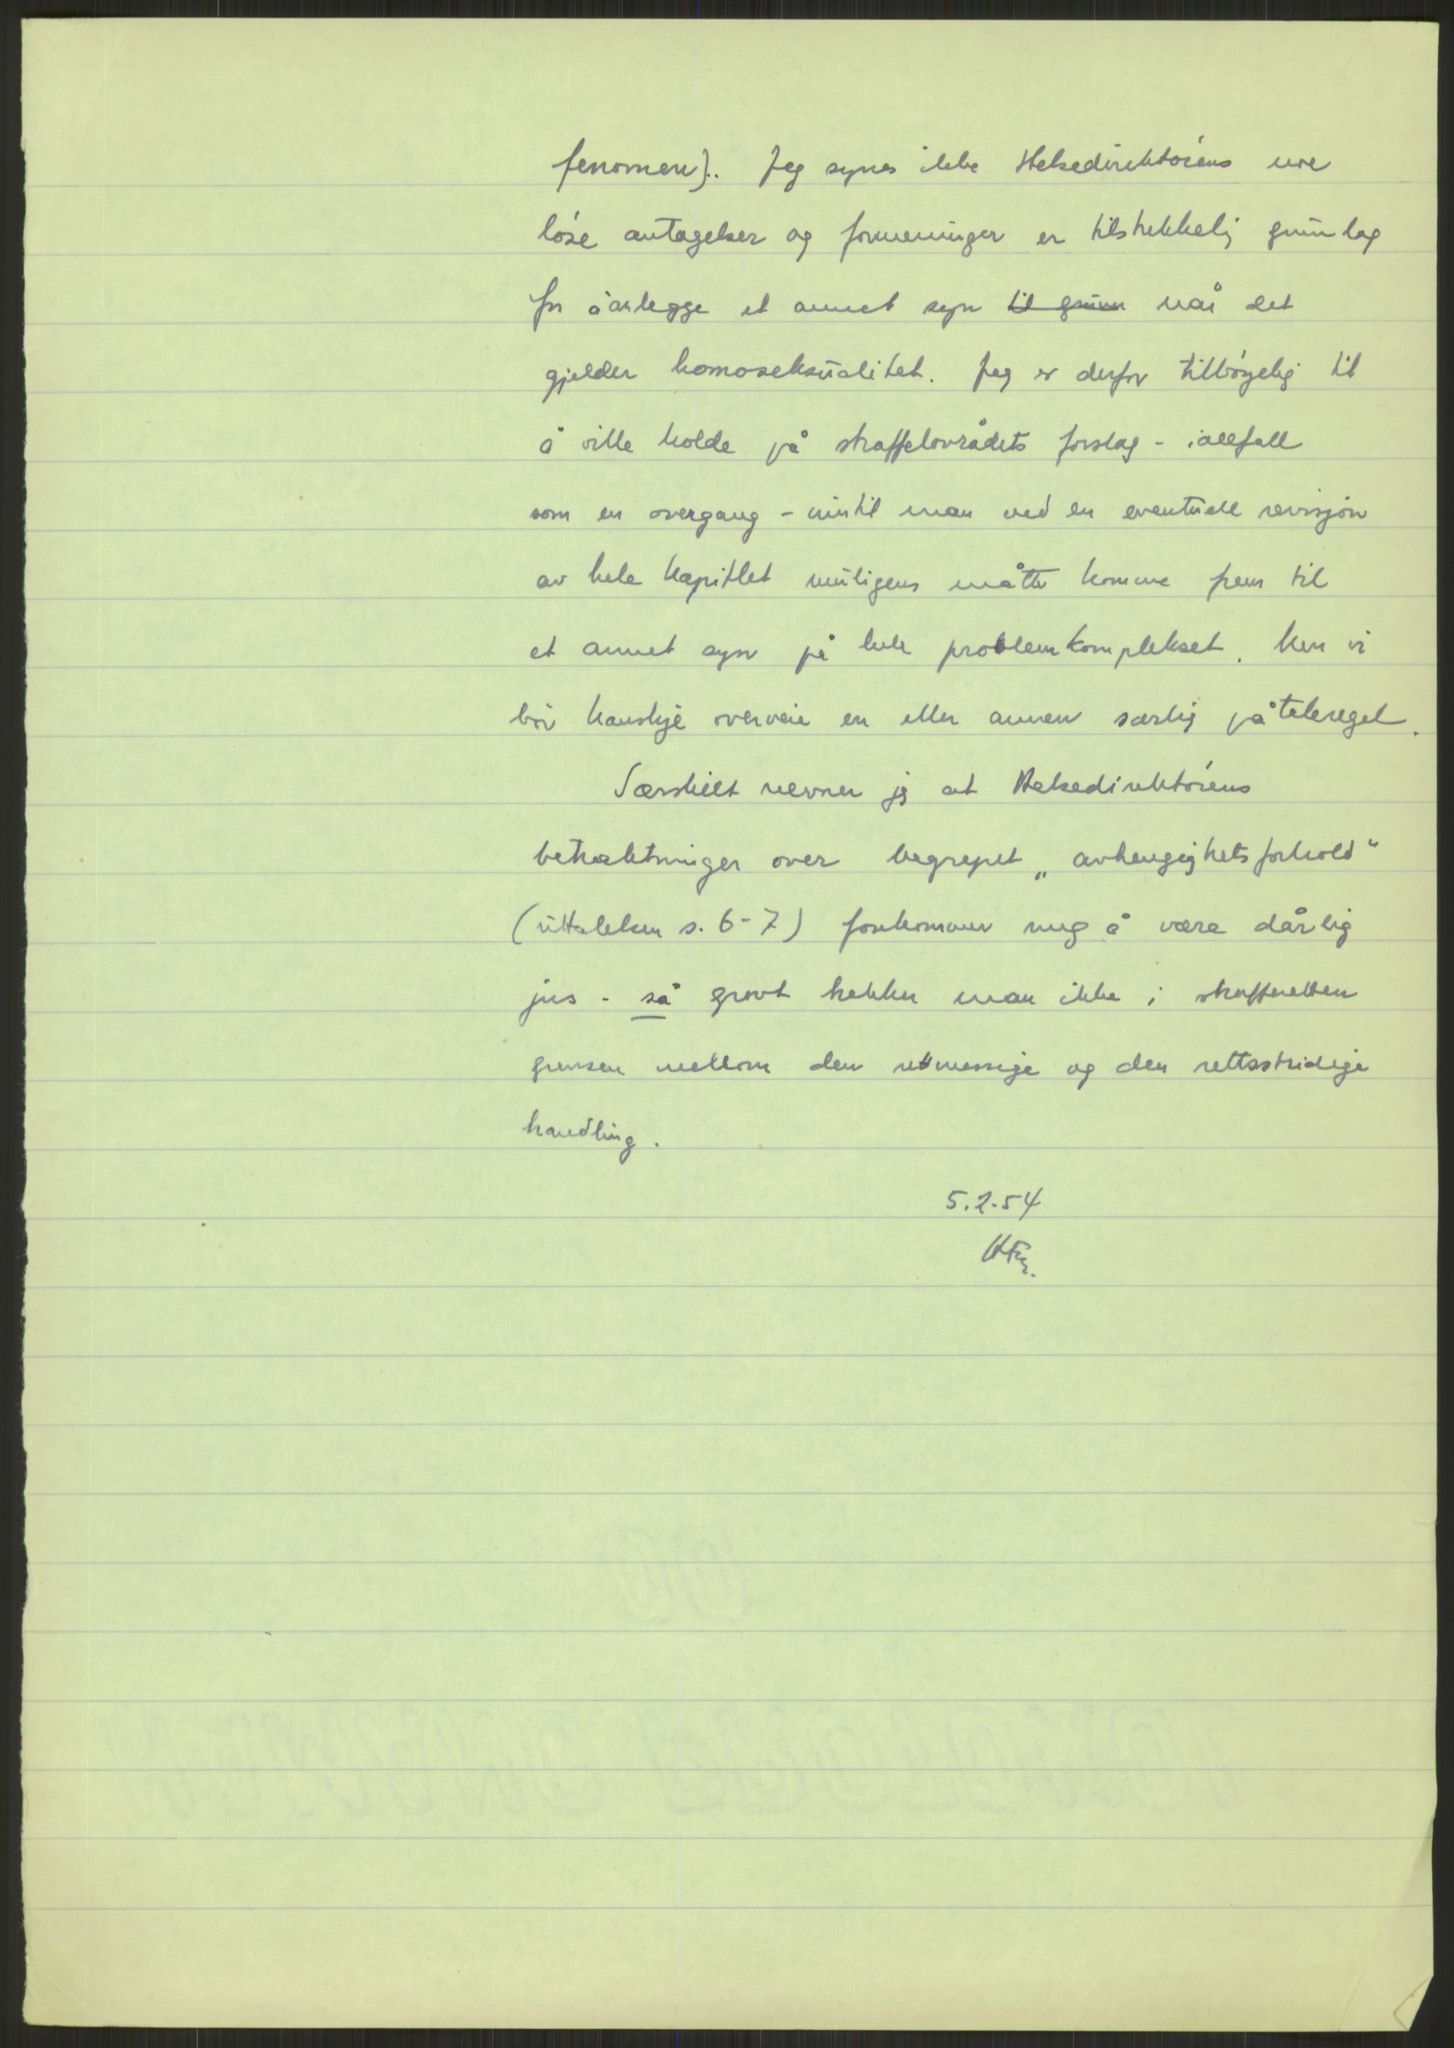 fenomen). Jeg synes ikke Helsedirektørens noe
løse antagelser og formeninger er tilstrekkelig grunlag
for å anlegge et annet syn til grunn når det
gjelder homoseksualitet. Jeg er derfor tilbøyelig til
å ville holde på straffelovrådets forslag - iallfall
som en overgang - inntil man ved en eventuell revisjon
av hele kapitlet muligens måtte komme frem til
et annet syn på hele problemkomplekset. Men vi
bør kanskje overveie en eller annen særlig påtaleregel.
Særskilt nevner jeg at Helsedirektørens
betraktninger over begrepet „avhengighetsforhold"
(uttalelsen s. 6-7) forekommer meg å være dårlig
jus - så grovt trekker man ikke i strafferetten
grensen mellom den rettmessige og den rettsstridige
handling.
5.2.54